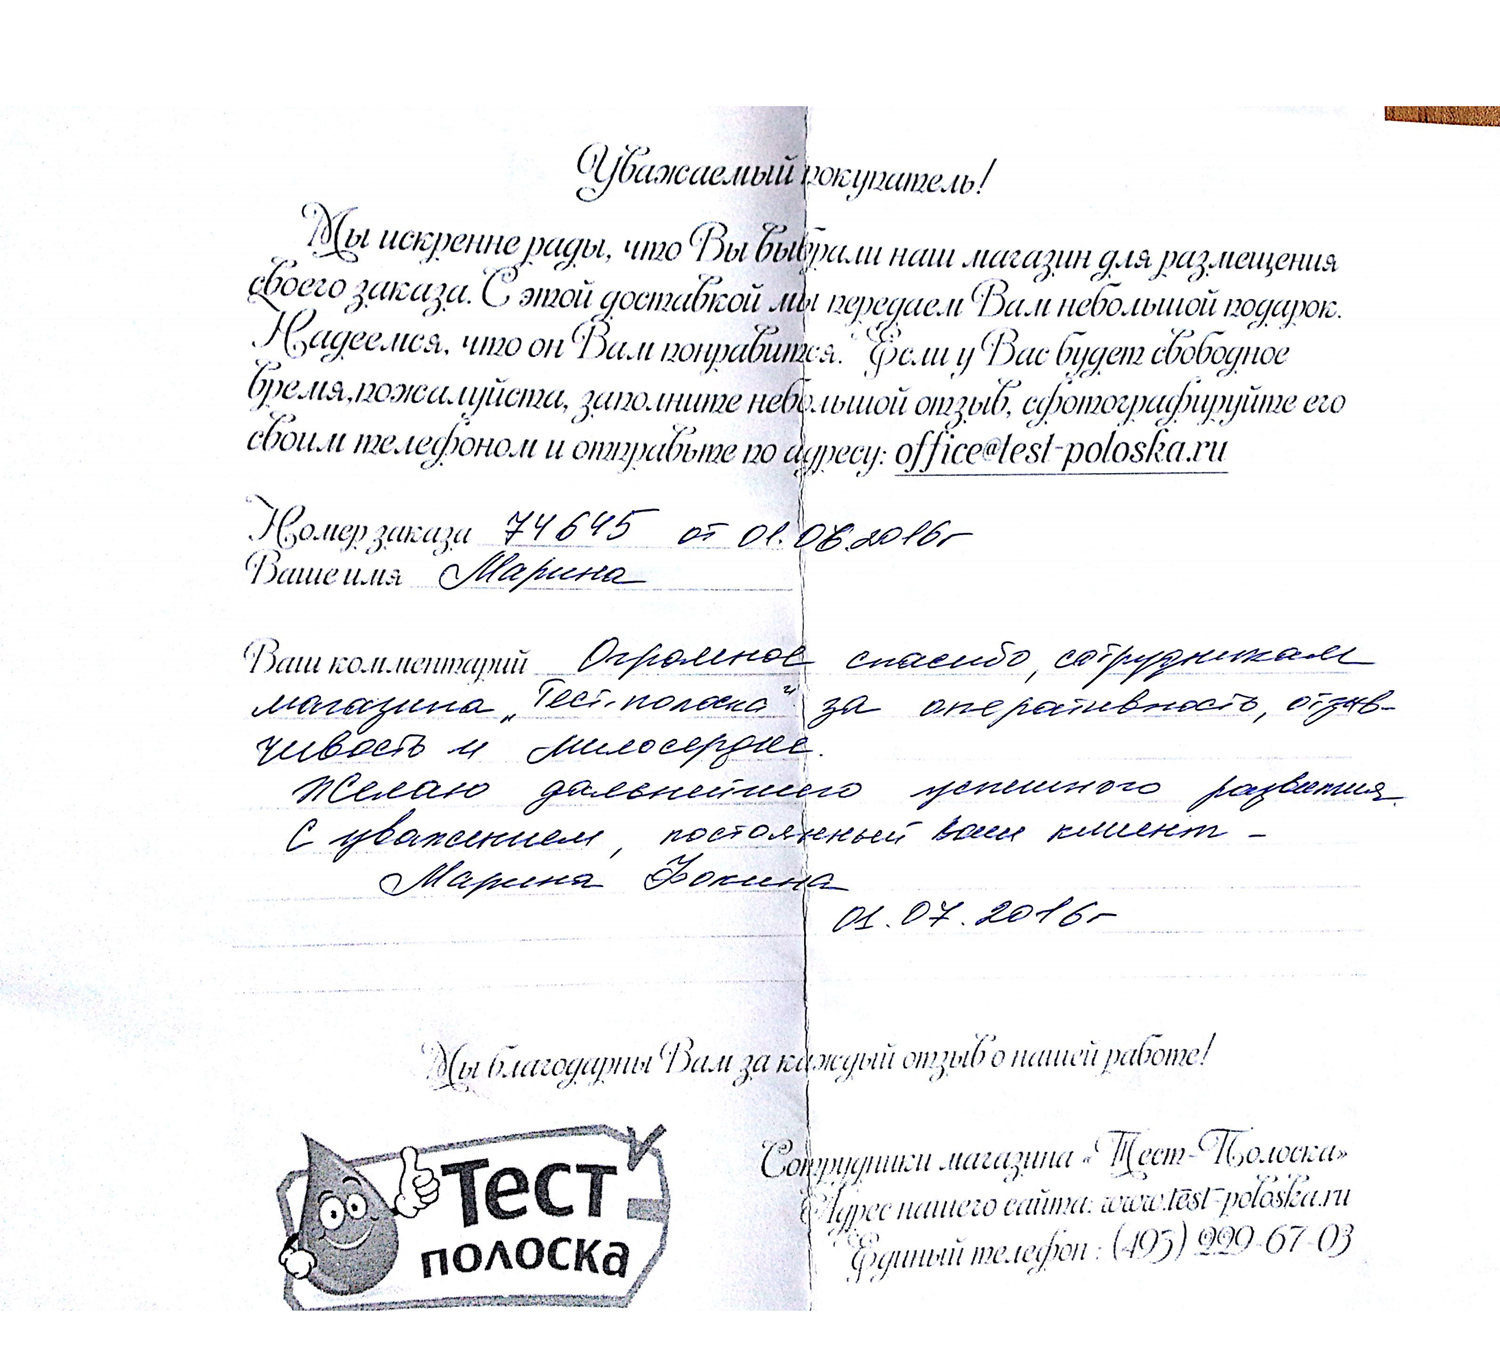 Уважаемый покупатель!
Мы искренне рады, что Вы выбрали наш магазин для размещения
своего заказа. С этой доставкой мы передаем Вам небольшой подарок.
Надеемся, что он Вам понравится. Если у Вас будет свободное
время,пожалуйста, заполните небольшой отзыв, сфотографируйте его
своим телефоном и отправьте по адресу: office@test-poloska.ru
Номер заказа 74645 от 01.06.2016г
Ваше имя Марина
Ваш комментарий Огромное спасибо, сотрудникам
магазина „Тест-полоска“ за оперативность, отзыв-
чивость и милосердие.
Желаю дальнейшего успешного развития.
С уважением, постоянный ваш клиент –
Марина Фокина
01.07.2016г
Мы благодарны Вам за каждый отзыв о нашей работе!
Тест
полоска
Сотрудники магазина «Тест-Полоска»
Адрес нашего сайта: www.test-poloska.ru
Единый телефон : (495) 229-67-03